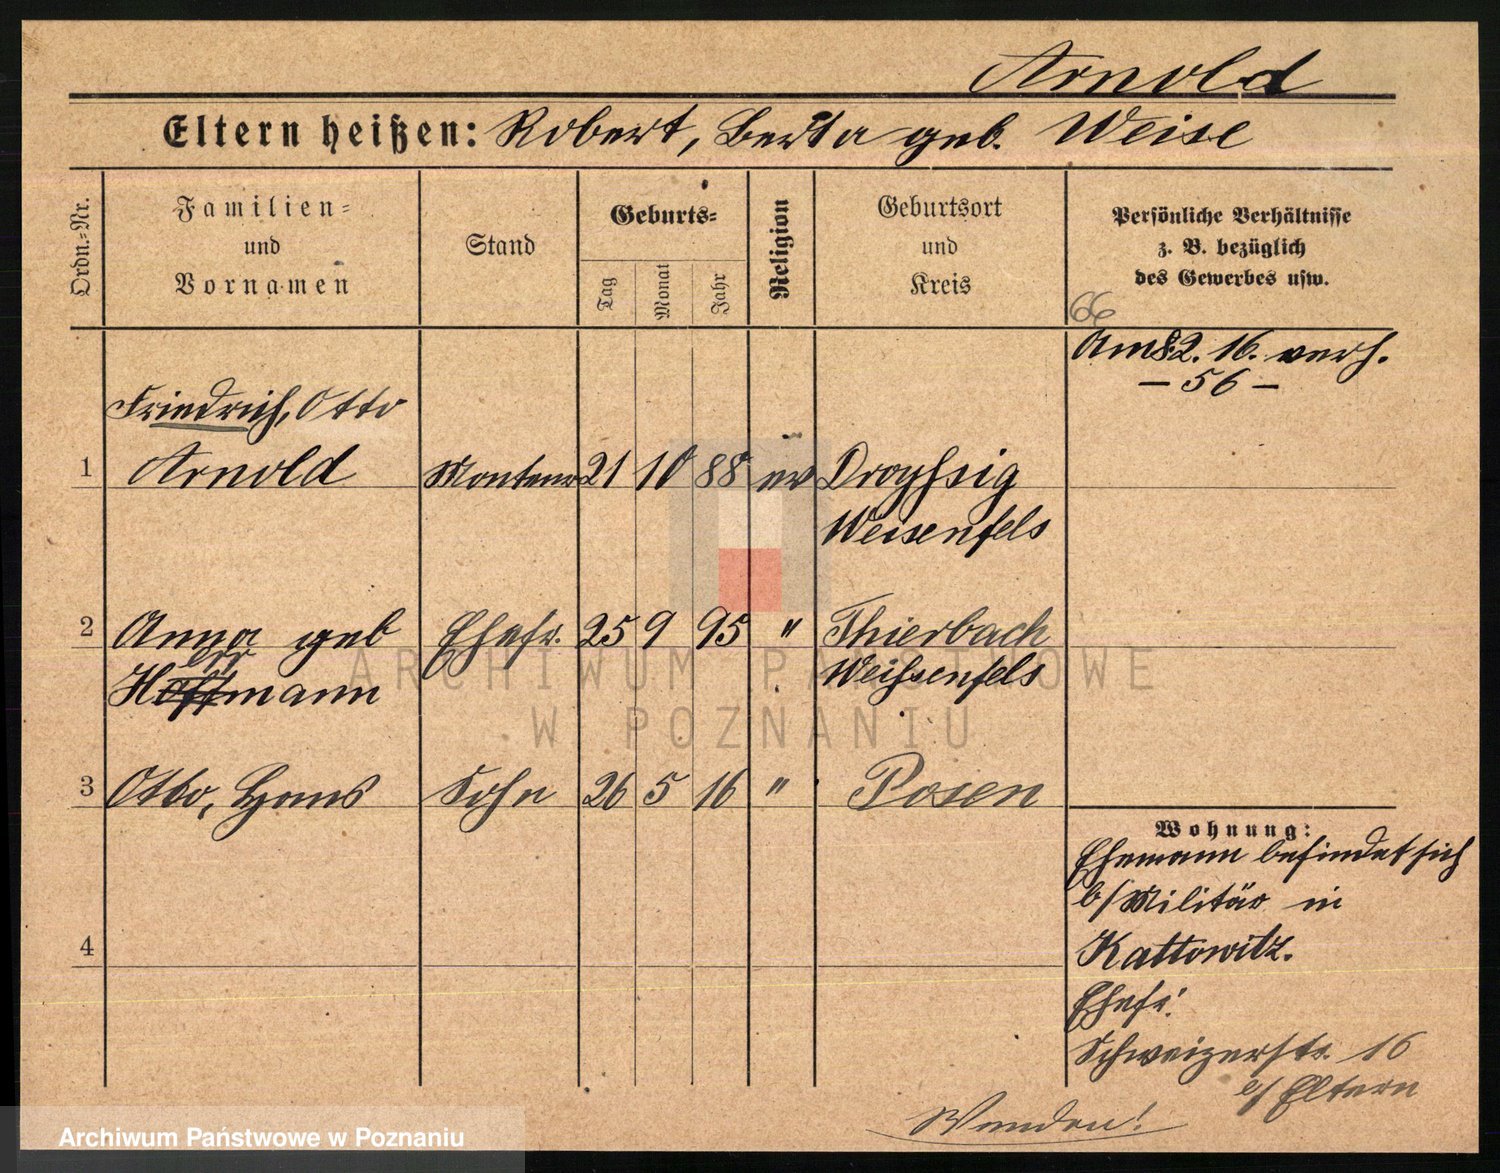 Arnold
Eltern heißen: Robert, Berta geb. Weise
Ordn.=Nr.
Familien=
und
Vornamen
Stand
Geburts=
Tag
Monat
Jahr
Religion
Geburtsort
und
Kreis
Persönliche Verhältnisse
z. B. bezüglich
des Gewerbes usw.
66
Am 8.2.16. verh.
— 56 —
Friedrich, Otto
1 Arnold Monteur 21 10 88 ev Droyssig
Weisenfels
2 Anna geb Ehefr. 25 9 95 " Thierbach
Hoffmann Weissenfels
rr
3 Otto, Hans Sohn 26 5 16 " Posen
4
Wohnung:
Ehemann befindet sich
b/Militär in
Kattowitz.
Ehefr:
Schweizerstr. 16
b/Eltern
Wenden!
ARCHIWUM PAŃSTWOWE
W POZNANIU
Archiwum Państwowe w Poznaniu